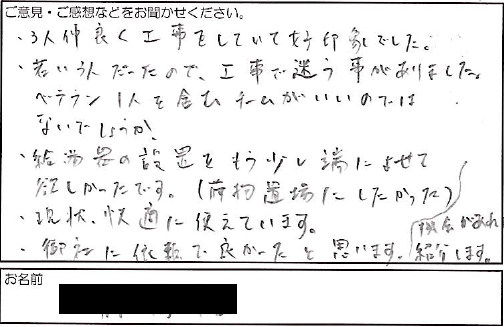 ご意見・ご感想などをお聞かせください。
・3人仲良く工事をしていて好印象でした。
・若い3人だったので、工事で迷う事がありました。
ベテラン1人を含むチームがいいのでは
ないでしょうか。
・給湯器の設置をもう少し端によせて
欲しかったです。(荷物置場にしたかった)
・現状、快適に使えています。
・御社に依頼で良かったと思います。機会があれば
紹介します。
お名前